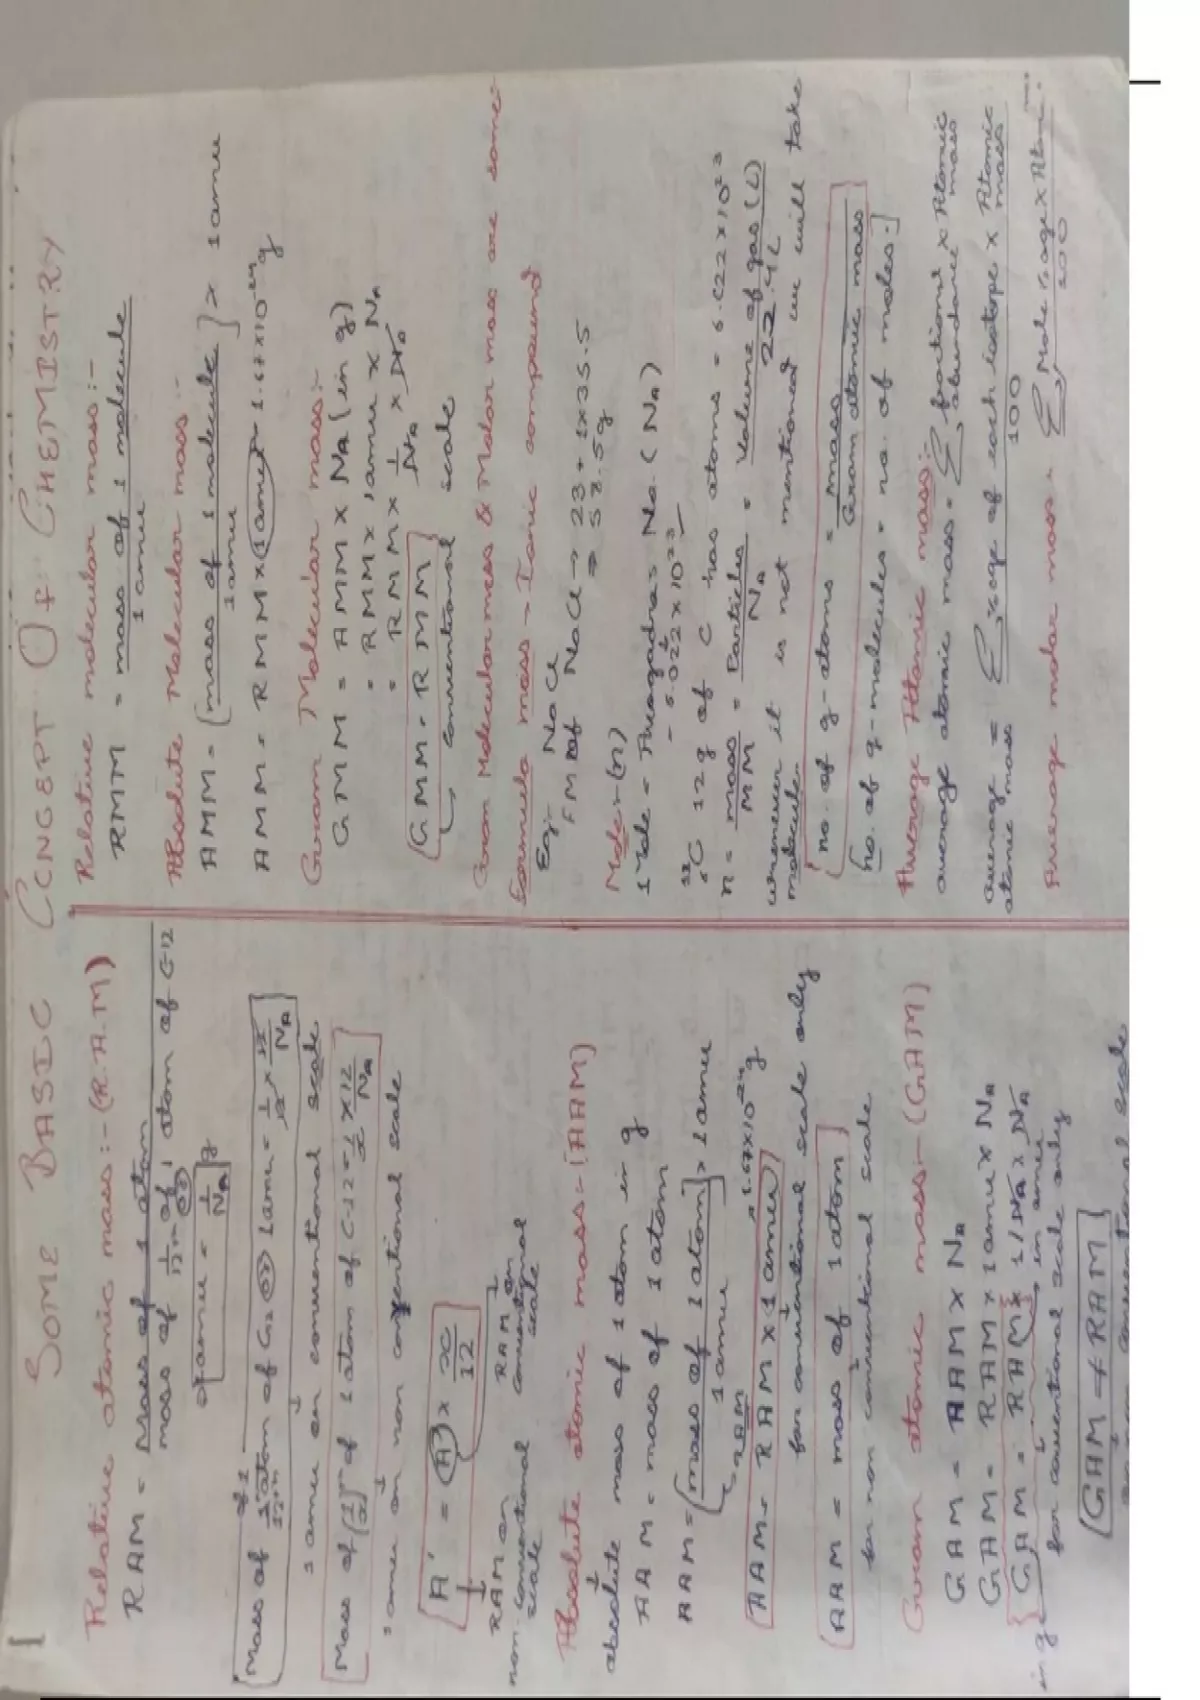 SOME BASIC CONCEPT OF CHEMISTRY
Relative atomic mass:-(R.A.M)
RAM = Mass of 1 atom
mass of 1/12th of 1 atom of C-12
1 amu = 1/NA g
Mass of 1/12th atom of C-12 1amu = 1/12 × 12/NA
1 amu on conventional scale
Mass of (1/x)th of 1 atom of C-12 = 1/x × 12/NA
1 amu on non conventional scale
A' = A × x/12
RAM on non conventional scale
RAM on conventional scale
Absolute atomic mass:-(AAM)
absolute mass of 1 atom in g
AAM = mass of 1 atom
AAM = [mass of 1 atom / 1 amu] × 1 amu
RAM
1.67×10-24 g
AAM = RAM × (1 amu)
for conventional scale only
AAM = mass of 1 atom
for non conventional scale
Gram atomic mass:-(GAM)
GAM = AAM × NA
GAM = RAM × 1 amu × NA
GAM = RAM × 1/NA × NA
in g
in amu
for conventional scale only
GAM ≠ RAM
Relative molecular mass:-
RMM = mass of 1 molecule
1 amu
Absolute Molecular mass:-
AMM = [mass of 1 molecule / 1 amu] × 1 amu
AMM = RMM × (1 amu) 1.67×10-24 g
Gram Molecular mass:-
GMM = AMM × NA (in g)
= RMM × 1 amu × NA
= RMM × 1/NA × NA
GMM = RMM
conventional scale
Gram Molecular mass & Molar mass are same:-
Formula mass → Ionic compound
Eg:- NaCl
FM of NaCl → 23 + 1×35.5
⇒ 58.5g
Mole:-(n)
1 Mole = Avogadro's No. (NA)
= 6.022 × 10 23
12 6 C 12g of C has atoms = 6.022 × 10 23
n = mass / MM = Particles / NA = Volume of gas (L) / 22.4L
whenever it is not mentioned we will take
molecule.
no. of g-atoms = mass / Gram atomic mass
no. of g-molecules = no. of moles.
Average Atomic mass:-
average atomic mass = Σ fractional abundance × Atomic mass
average atomic mass = Σ %age of each isotope × Atomic mass
100
Average molar mass = Σ Mole %age ×
100